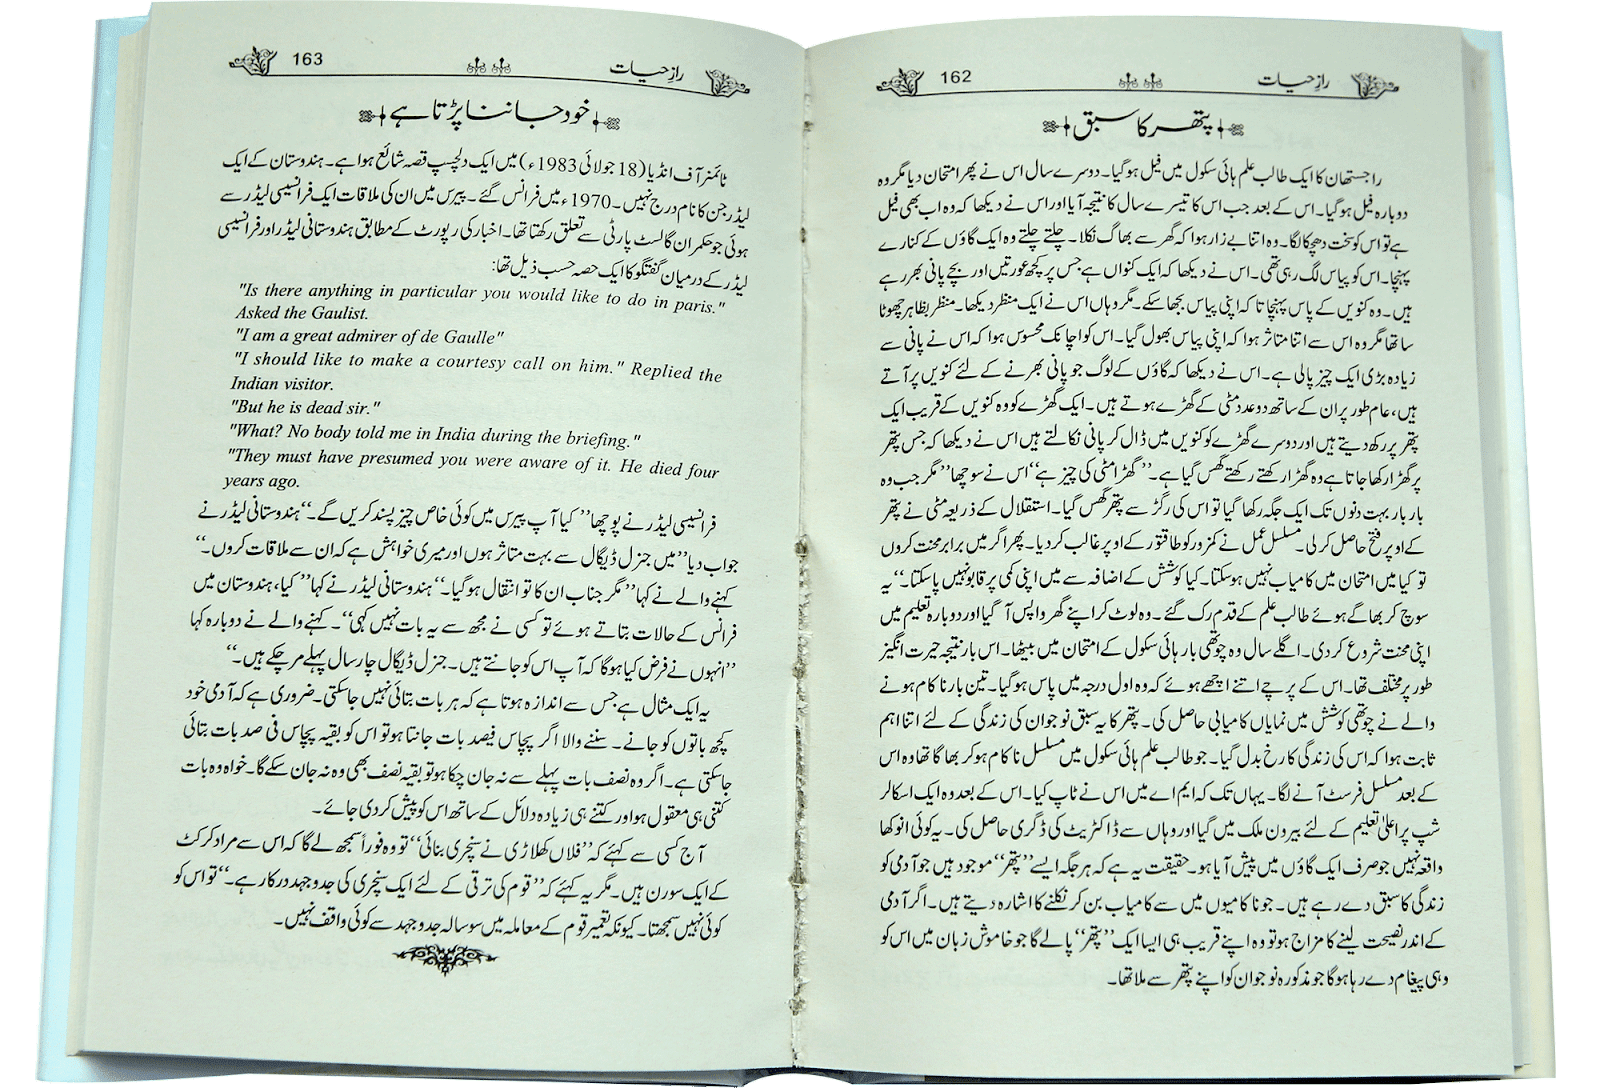 رازِ حیات 162
پتھر کا سبق
راجستھان کا ایک طالب علم ہائی سکول میں فیل ہوگیا۔ دوسرے سال اس نے پھر امتحان دیا مگر وہ
دوبارہ فیل ہوگیا۔ اس کے بعد جب اس کا تیسرے سال کا نتیجہ آیا اور اس نے دیکھا کہ وہ اب بھی فیل
ہے تو اس کو سخت دھچکا لگا۔ وہ اتنا بے زار ہوا کہ گھر سے بھاگ نکلا۔ چلتے چلتے وہ ایک گاؤں کے کنارے
پہنچا۔ اس کو پیاس لگ رہی تھی۔ اس نے دیکھا کہ ایک کنواں ہے جس پر کچھ عورتیں اور بچے پانی بھر رہے
ہیں۔ وہ کنویں کے پاس پہنچا تاکہ اپنی پیاس بجھا سکے۔ مگر وہاں اس نے ایک منظر دیکھا۔ منظر بظاہر چھوٹا
سا تھا مگر وہ اس سے اتنا متاثر ہوا کہ اپنی پیاس بھول گیا۔ اس کو اچانک محسوس ہوا کہ اس نے پانی سے
زیادہ بڑی ایک چیز پالی ہے۔ اس نے دیکھا کہ گاؤں کے لوگ جو پانی بھرنے کے لئے کنویں پر آتے
ہیں، عام طور پر ان کے ساتھ دو عدد مٹی کے گھڑے ہوتے ہیں۔ ایک گھڑے کو وہ کنویں کے قریب ایک
پتھر پر رکھ دیتے ہیں اور دوسرے گھڑے کو کنویں میں ڈال کر پانی نکالتے ہیں اس نے دیکھا کہ جس پتھر
پر گھڑا رکھا جاتا ہے وہ گھڑا رکھتے رکھتے گھس گیا ہے۔ ’’گھڑا مٹی کی چیز ہے‘‘ اس نے سوچھا ’’مگر جب وہ
بار بار بہت دنوں تک ایک جگہ رکھا گیا تو اس کی رگڑ سے پتھر گھس گیا۔ استقلال کے ذریعہ مٹی نے پتھر
کے اوپر فتح حاصل کرلی۔ مسلسل عمل نے کمزور کو طاقتور کے اوپر غالب کردیا۔ پھر اگر میں برابر محنت کروں
تو کیا میں امتحان میں کامیاب نہیں ہوسکتا۔ کیا کوشش کے اضافہ سے میں اپنی کمی پر قابو نہیں پاسکتا۔‘‘ یہ
سوچ کر بھاگے ہوئے طالب علم کے قدم رک گئے۔ وہ لوٹ کر اپنے گھر واپس آگیا اور دوبارہ تعلیم میں
اپنی محنت شروع کردی۔ اگلے سال وہ چوتھی بار ہائی سکول کے امتحان میں بیٹھا۔ اس بار نتیجہ حیرت انگیز
طور پر مختلف تھا۔ اس کے پرچے اتنے اچھے ہوئے کہ وہ اول درجہ میں پاس ہوگیا۔ تین بار ناکام ہونے
والے نے چوتھی کوشش میں نمایاں کامیابی حاصل کی۔ پتھر کا یہ سبق نوجوان کی زندگی کے لئے اتنا اہم
ثابت ہوا کہ اس کی زندگی کا رخ بدل گیا۔ جو طالب علم ہائی سکول میں مسلسل ناکام ہوکر بھاگا تھا وہ اس
کے بعد مسلسل فرسٹ آنے لگا۔ یہاں تک کہ ایم اے میں اس نے ٹاپ کیا۔ اس کے بعد وہ ایک اسکالر
شپ پر اعلیٰ تعلیم کے لئے بیرون ملک میں گیا اور وہاں سے ڈاکٹریٹ کی ڈگری حاصل کی۔ یہ کوئی انوکھا
واقعہ نہیں جو صرف ایک گاؤں میں پیش آیا ہو۔ حقیقت یہ ہے کہ ہر جگہ ایسے ’’پتھر‘‘ موجود ہیں جو آدمی کو
زندگی کا سبق دے رہے ہیں۔ جو ناکامیوں میں سے کامیاب بن کر نکلنے کا اشارہ دیتے ہیں۔ اگر آدمی
کے اندر نصیحت لینے کا مزاج ہو تو وہ اپنے قریب ہی ایسا ایک ’’پتھر‘‘ پالے گا جو خاموش زبان میں اس کو
وہی پیغام دے رہا ہوگا جو مذکورہ نوجوان کو اپنے پتھر سے ملا تھا۔
رازِ حیات 163
خود جاننا پڑتا ہے
ٹائمز آف انڈیا (18 جولائی 1983ء) میں ایک دلچسپ قصہ شائع ہوا ہے۔ ہندوستان کے ایک
لیڈر جن کا نام درج نہیں۔ 1970ء میں فرانس گئے۔ پیرس میں ان کی ملاقات ایک فرانسیسی لیڈر سے
ہوئی جو حکمران گالسٹ پارٹی سے تعلق رکھتا تھا۔ اخبار کی رپورٹ کے مطابق ہندوستانی لیڈر اور فرانسیسی
لیڈر کے درمیان گفتگو کا ایک حصہ حسب ذیل تھا:
"Is there anything in particular you would like to do in paris."
Asked the Gaulist.
"I am a great admirer of de Gaulle"
"I should like to make a courtesy call on him." Replied the
Indian visitor.
"But he is dead sir."
"What? No body told me in India during the briefing."
"They must have presumed you were aware of it. He died four
years ago.
فرانسیسی لیڈر نے پوچھا ’’کیا آپ پیرس میں کوئی خاص چیز پسند کریں گے۔‘‘ ہندوستانی لیڈر نے
جواب دیا ’’میں جنرل ڈیگال سے بہت متاثر ہوں اور میری خواہش ہے کہ ان سے ملاقات کروں۔‘‘
کہنے والے نے کہا ’’مگر جناب ان کا تو انتقال ہوگیا۔‘‘ ہندوستانی لیڈر نے کہا ’’کیا، ہندوستان میں
فرانس کے حالات بتاتے ہوئے تو کسی نے مجھ سے یہ بات نہیں کہی‘‘۔ کہنے والے نے دوبارہ کہا
’’انہوں نے فرض کیا ہوگا کہ آپ اس کو جانتے ہیں۔ جنرل ڈیگال چار سال پہلے مرچکے ہیں۔‘‘
یہ ایک مثال ہے جس سے اندازہ ہوتا ہے کہ ہر بات بتائی نہیں جاسکتی۔ ضروری ہے کہ آدمی خود
کچھ باتوں کو جانے۔ سننے والا اگر پچاس فیصد بات جانتا ہو تو اس کو بقیہ پچاس فی صد بات بتائی
جاسکتی ہے۔ اگر وہ نصف بات پہلے سے نہ جان چکا ہو تو بقیہ نصف بھی وہ نہ جان سکے گا۔ خواہ وہ بات
کتنی ہی معقول ہو اور کتنے ہی زیادہ دلائل کے ساتھ اس کو پیش کردی جائے۔
آج کسی سے کہئے کہ ’’فلاں کھلاڑی نے سنچری بنائی‘‘ تو وہ فوراً سمجھ لے گا کہ اس سے مراد کرکٹ
کے ایک سو رن ہیں۔ مگر یہ کہئے کہ ’’قوم کی ترقی کے لئے ایک سنچری کی جدوجہد درکار ہے۔‘‘ تو اس کو
کوئی نہیں سمجھتا۔ کیونکہ تعمیر قوم کے معاملہ میں سو سالہ جدوجہد سے کوئی واقف نہیں۔